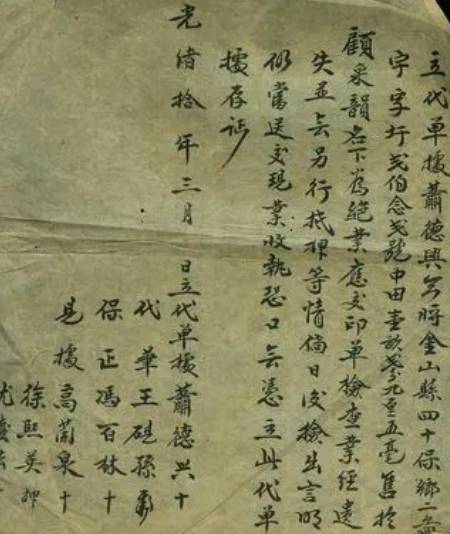 立代单據蕭德興為将金山縣四十保鄉一啚
宇字圩弍伯念弍號中田壹畝叁分九厘五毫售於
顧采韻名下為絕業應交印单檢查業經遺
失並無另行抵押等情倘日後檢出言明
仍當送交現業收執恐口無憑立此代单
據存証
光緒拾年三月 日立代单據蕭德興十
代華王硯孫
保正馮百林十
見據高蘭泉十
徐熙英押